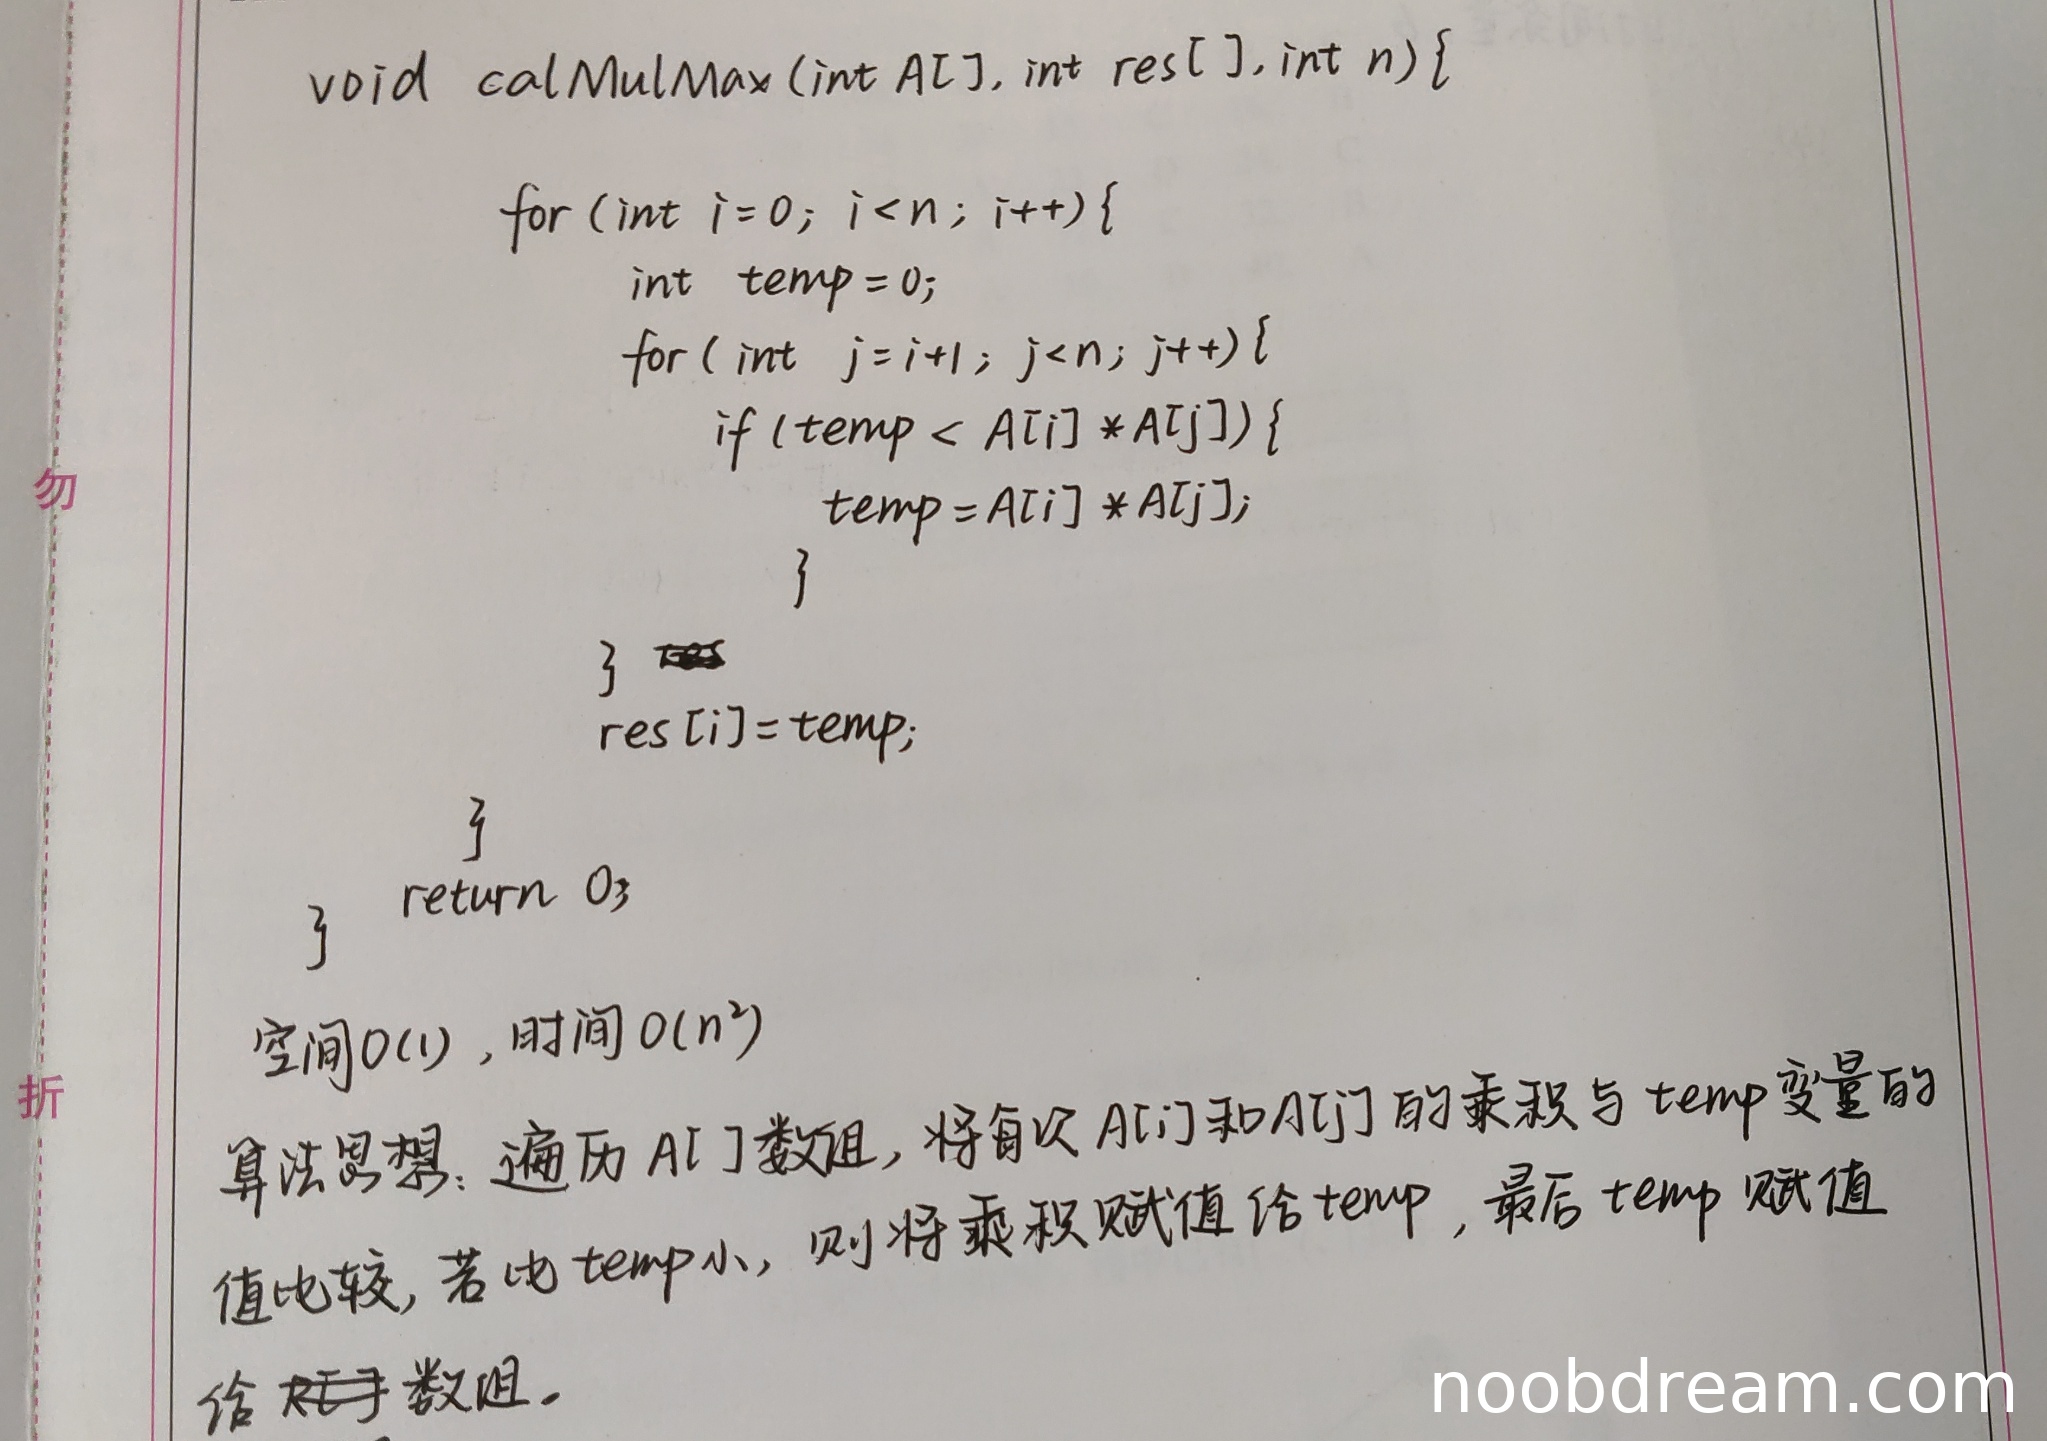 void calMulMax(int A[], int res[], int n){
for(int i=0; i<n; i++){
int temp=0;
for(int j=i+1; j<n; j++){
if(temp < A[i]*A[j]){
temp=A[i]*A[j];
}
}
res[i]=temp;
}
return 0;
}
空间O(1),时间O(n²)
算法思想:遍历A[]数组,将每次A[i]和A[j]的乘积与temp变量的
值比较,若比temp小,则将乘积赋值给temp,最后temp赋值
给 数组.
勿
折
noobdream.com